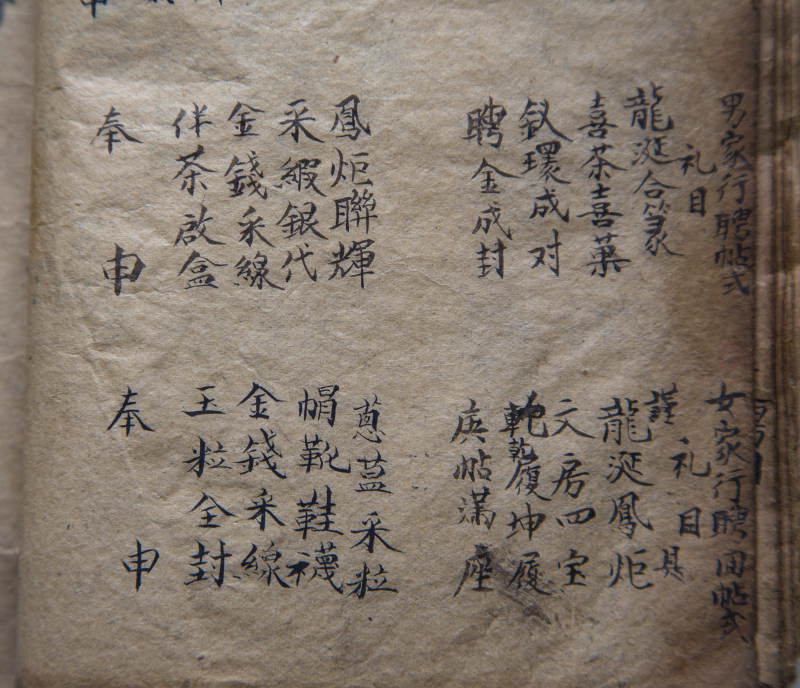 男家行聘帖式
礼目
龍涎合篆
喜茶喜菓
釵環成对
聘金成封
鳳炬聯輝
采緞銀代
金錢采線
伴茶啟盒
奉申
女家行聘回帖式
謹具
礼目
龍涎鳳炬
文房四宝
乾履坤履
庚帖滿座
蔥 采粒
帽靴鞋襪
金錢采線
玉粒全封
奉申